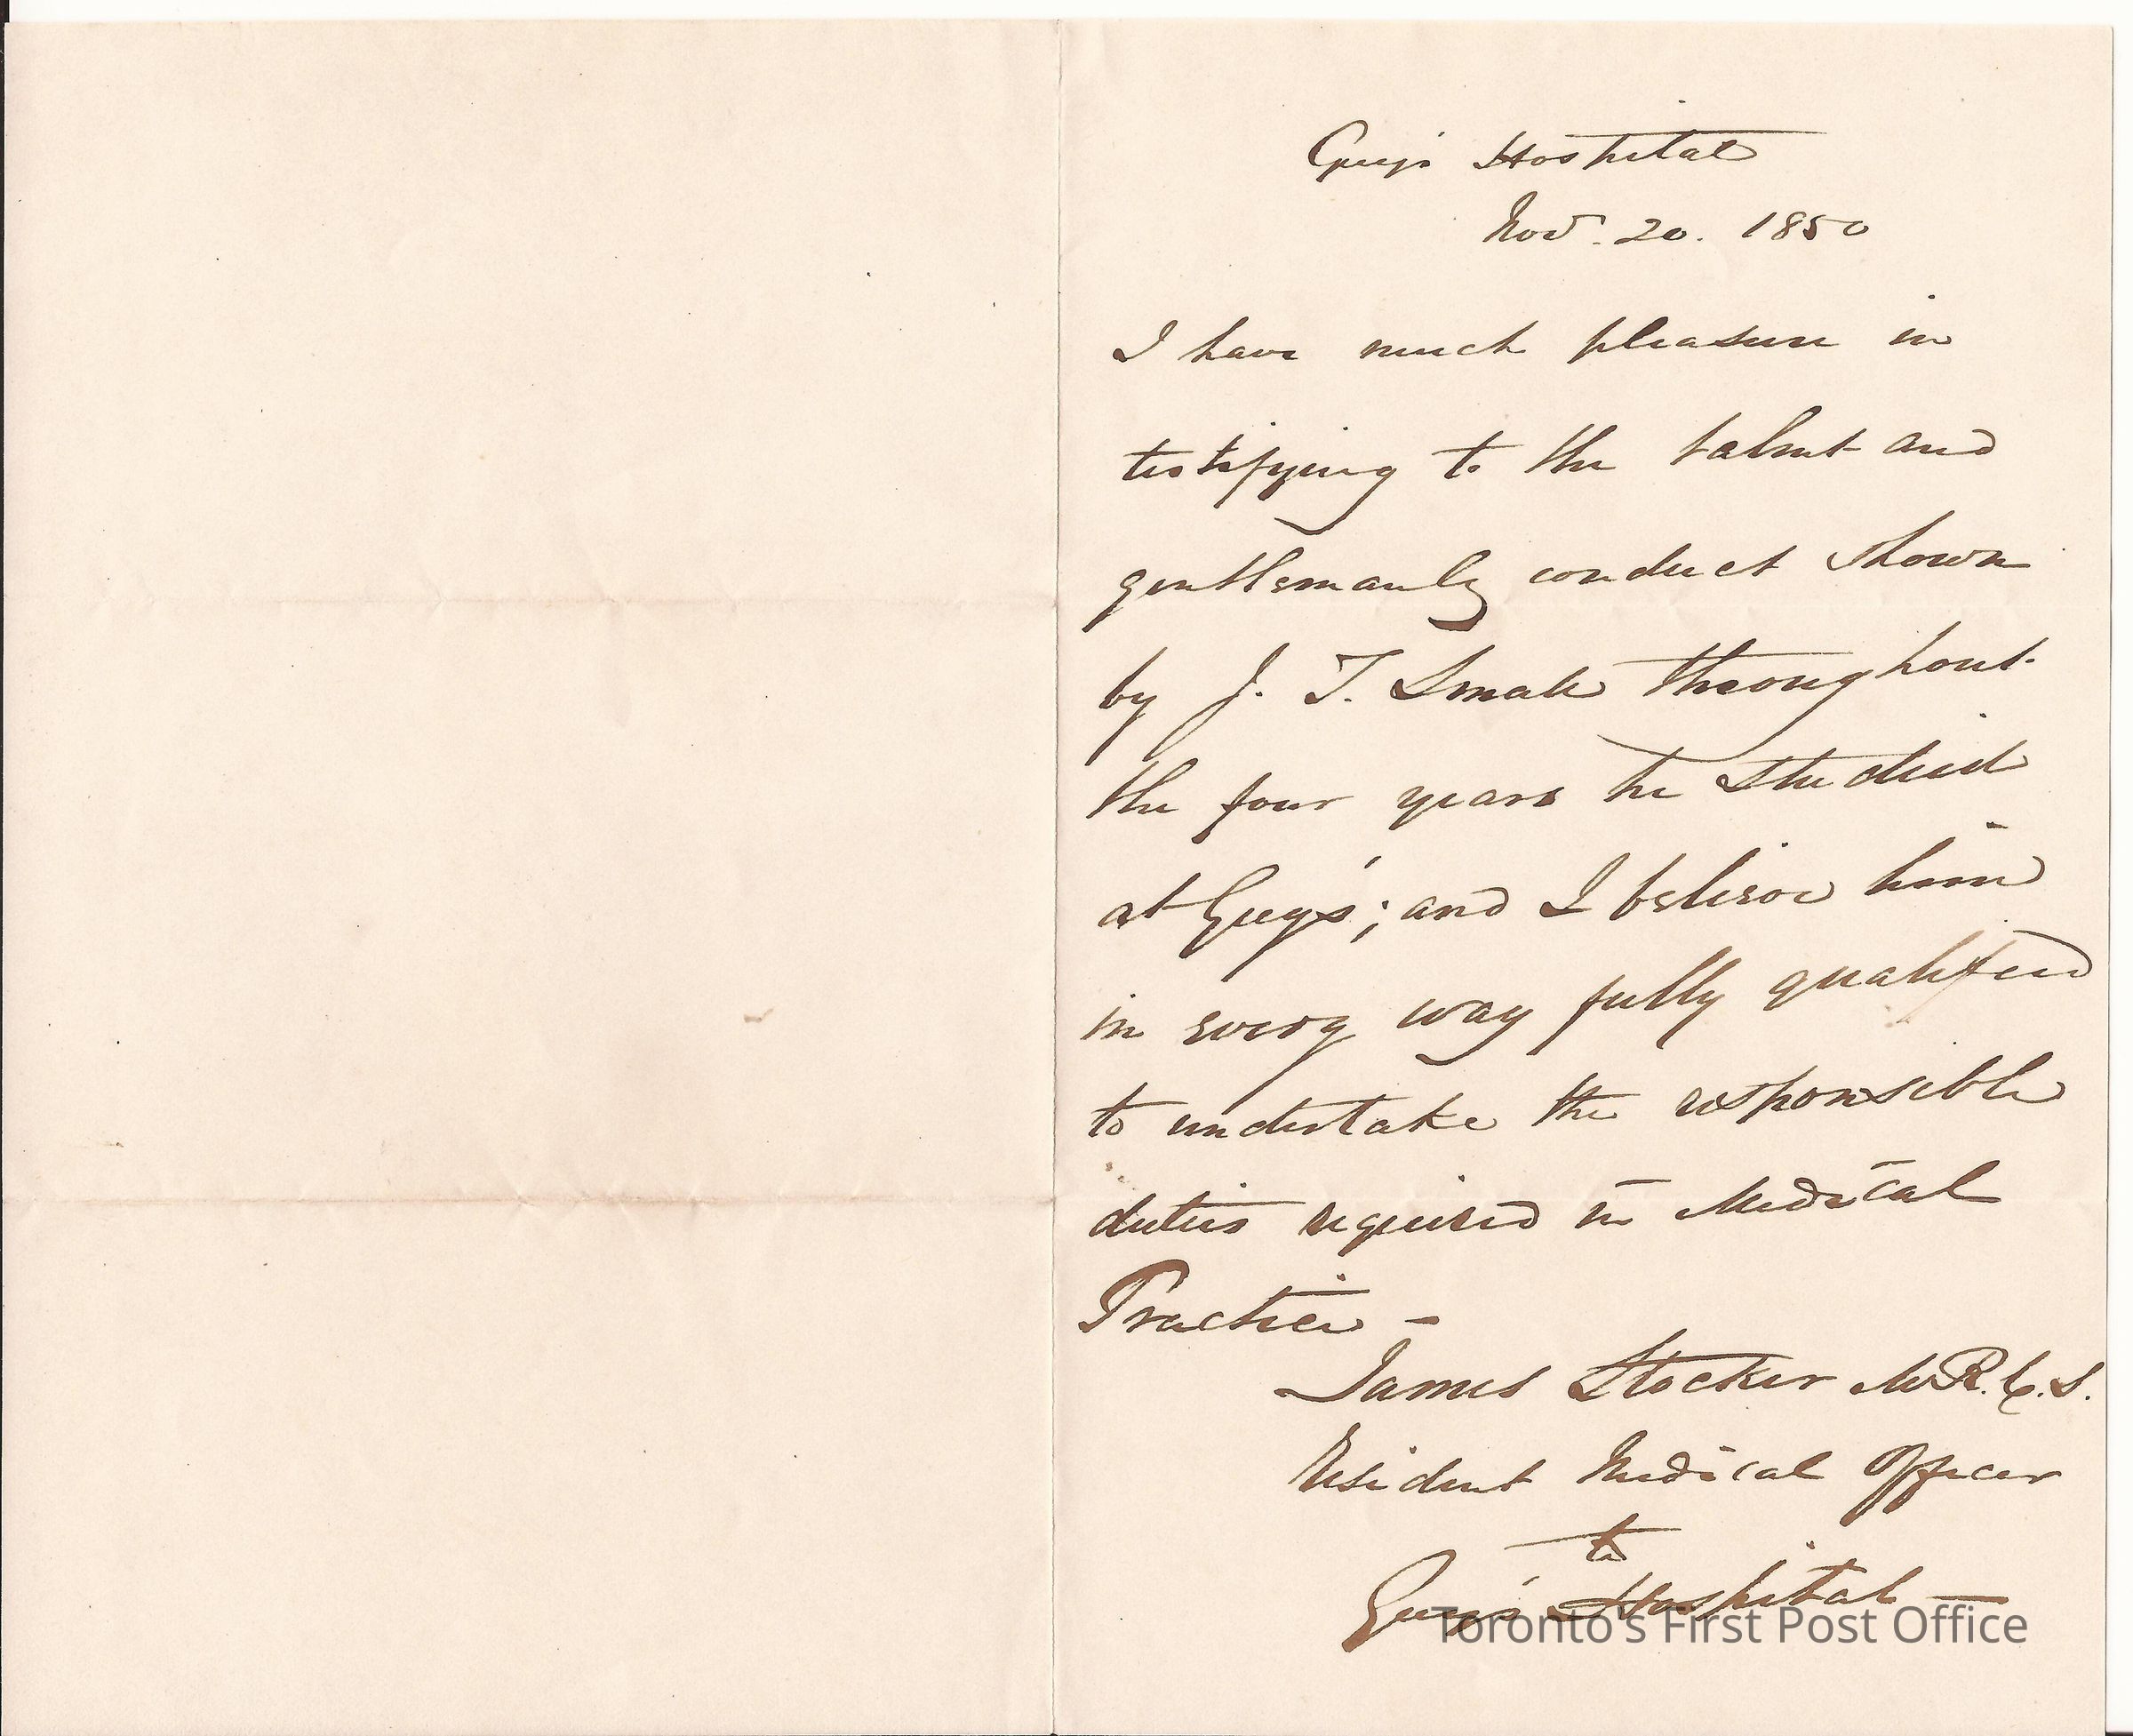 Guy's Hospital
Nov. 20. 1850
I have much pleasure in
testifying to the talent and
gentlemanly conduct shown
by J. T. Smale throughout
the four years he studied
at Guy's; and I believe him
in every way fully qualified
to undertake the responsible
duties required in Medical
Practice -
James Stocker M.R.C.S.
Resident Medical Officer
to
Guy's Hospital —
Toronto's First Post Office